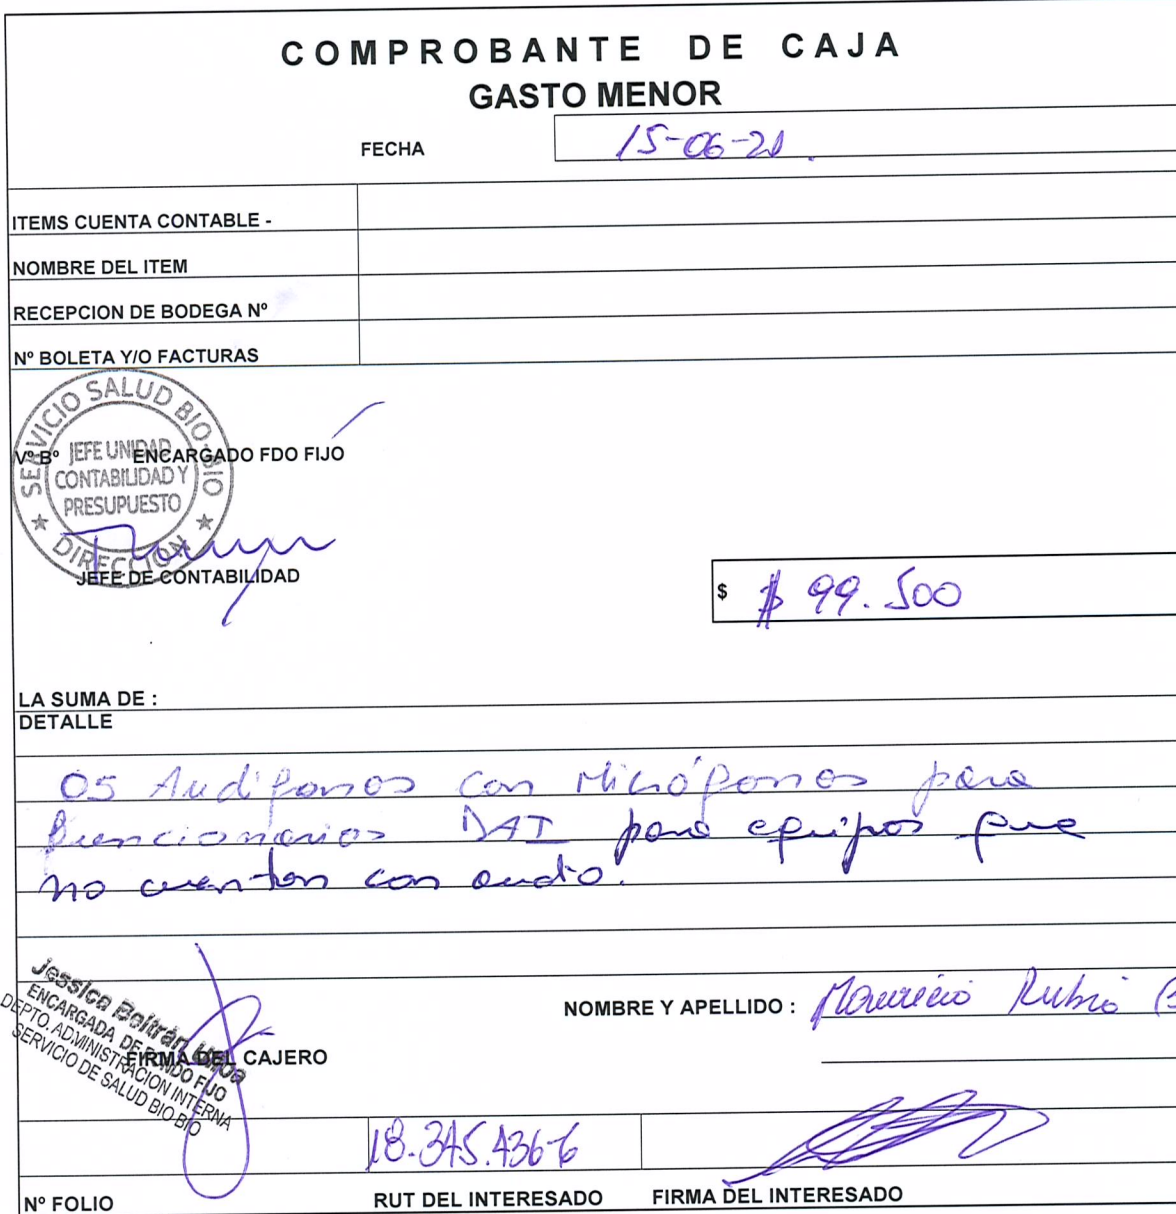 COMPROBANTE DE CAJA
GASTO MENOR
FECHA 15-06-21.
ITEMS CUENTA CONTABLE -
NOMBRE DEL ITEM
RECEPCION DE BODEGA Nº
Nº BOLETA Y/O FACTURAS
SERVICIO SALUD BIO-BIO
JEFE UNIDAD
CONTABILIDAD Y
PRESUPUESTO
DIRECCION
Vº Bº ENCARGADO FDO FIJO
JEFE DE CONTABILIDAD
$ $ 99.500
LA SUMA DE :
DETALLE
05 Audífonos con Micrófonos para
funcionarios DAI para equipos que
no cuentan con audio.
Jessica Beltrán
ENCARGADA DE FONDO FIJO
DEPTO. ADMINISTRACION INTERNA
SERVICIO DE SALUD BIO-BIO
NOMBRE Y APELLIDO : Mauricio Rubio
FIRMA DEL CAJERO
18.345.436-6
Nº FOLIO RUT DEL INTERESADO FIRMA DEL INTERESADO